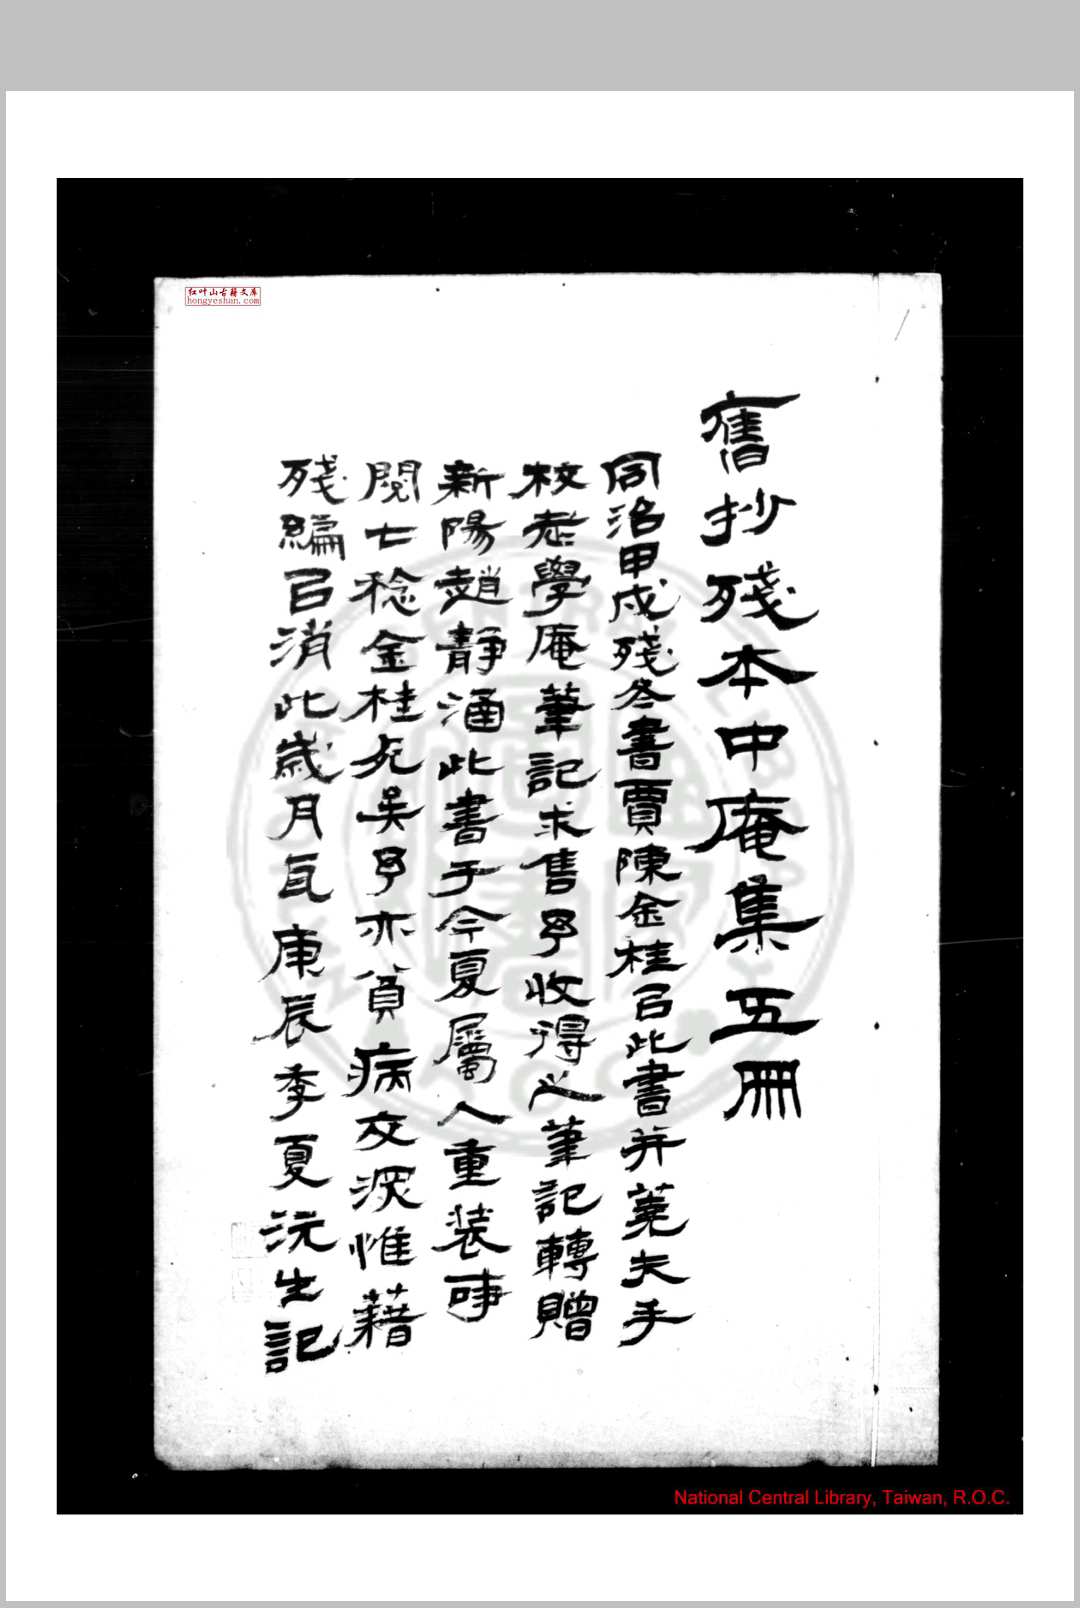 舊抄殘本中庵集五冊
同治甲戌殘冬書賈陳金桂㠯此書并蕘夫手
校老學庵筆記求售予收得之筆記轉贈
新陽趙靜涵此書于今夏屬人重装時
閱七稔金桂死矣予亦貧病交深惟藉
殘編㠯消此歲月瓦庚辰季夏沅生記
红叶山古籍文库
hongyeshan.com
National Central Library, Taiwan, R.O.C.